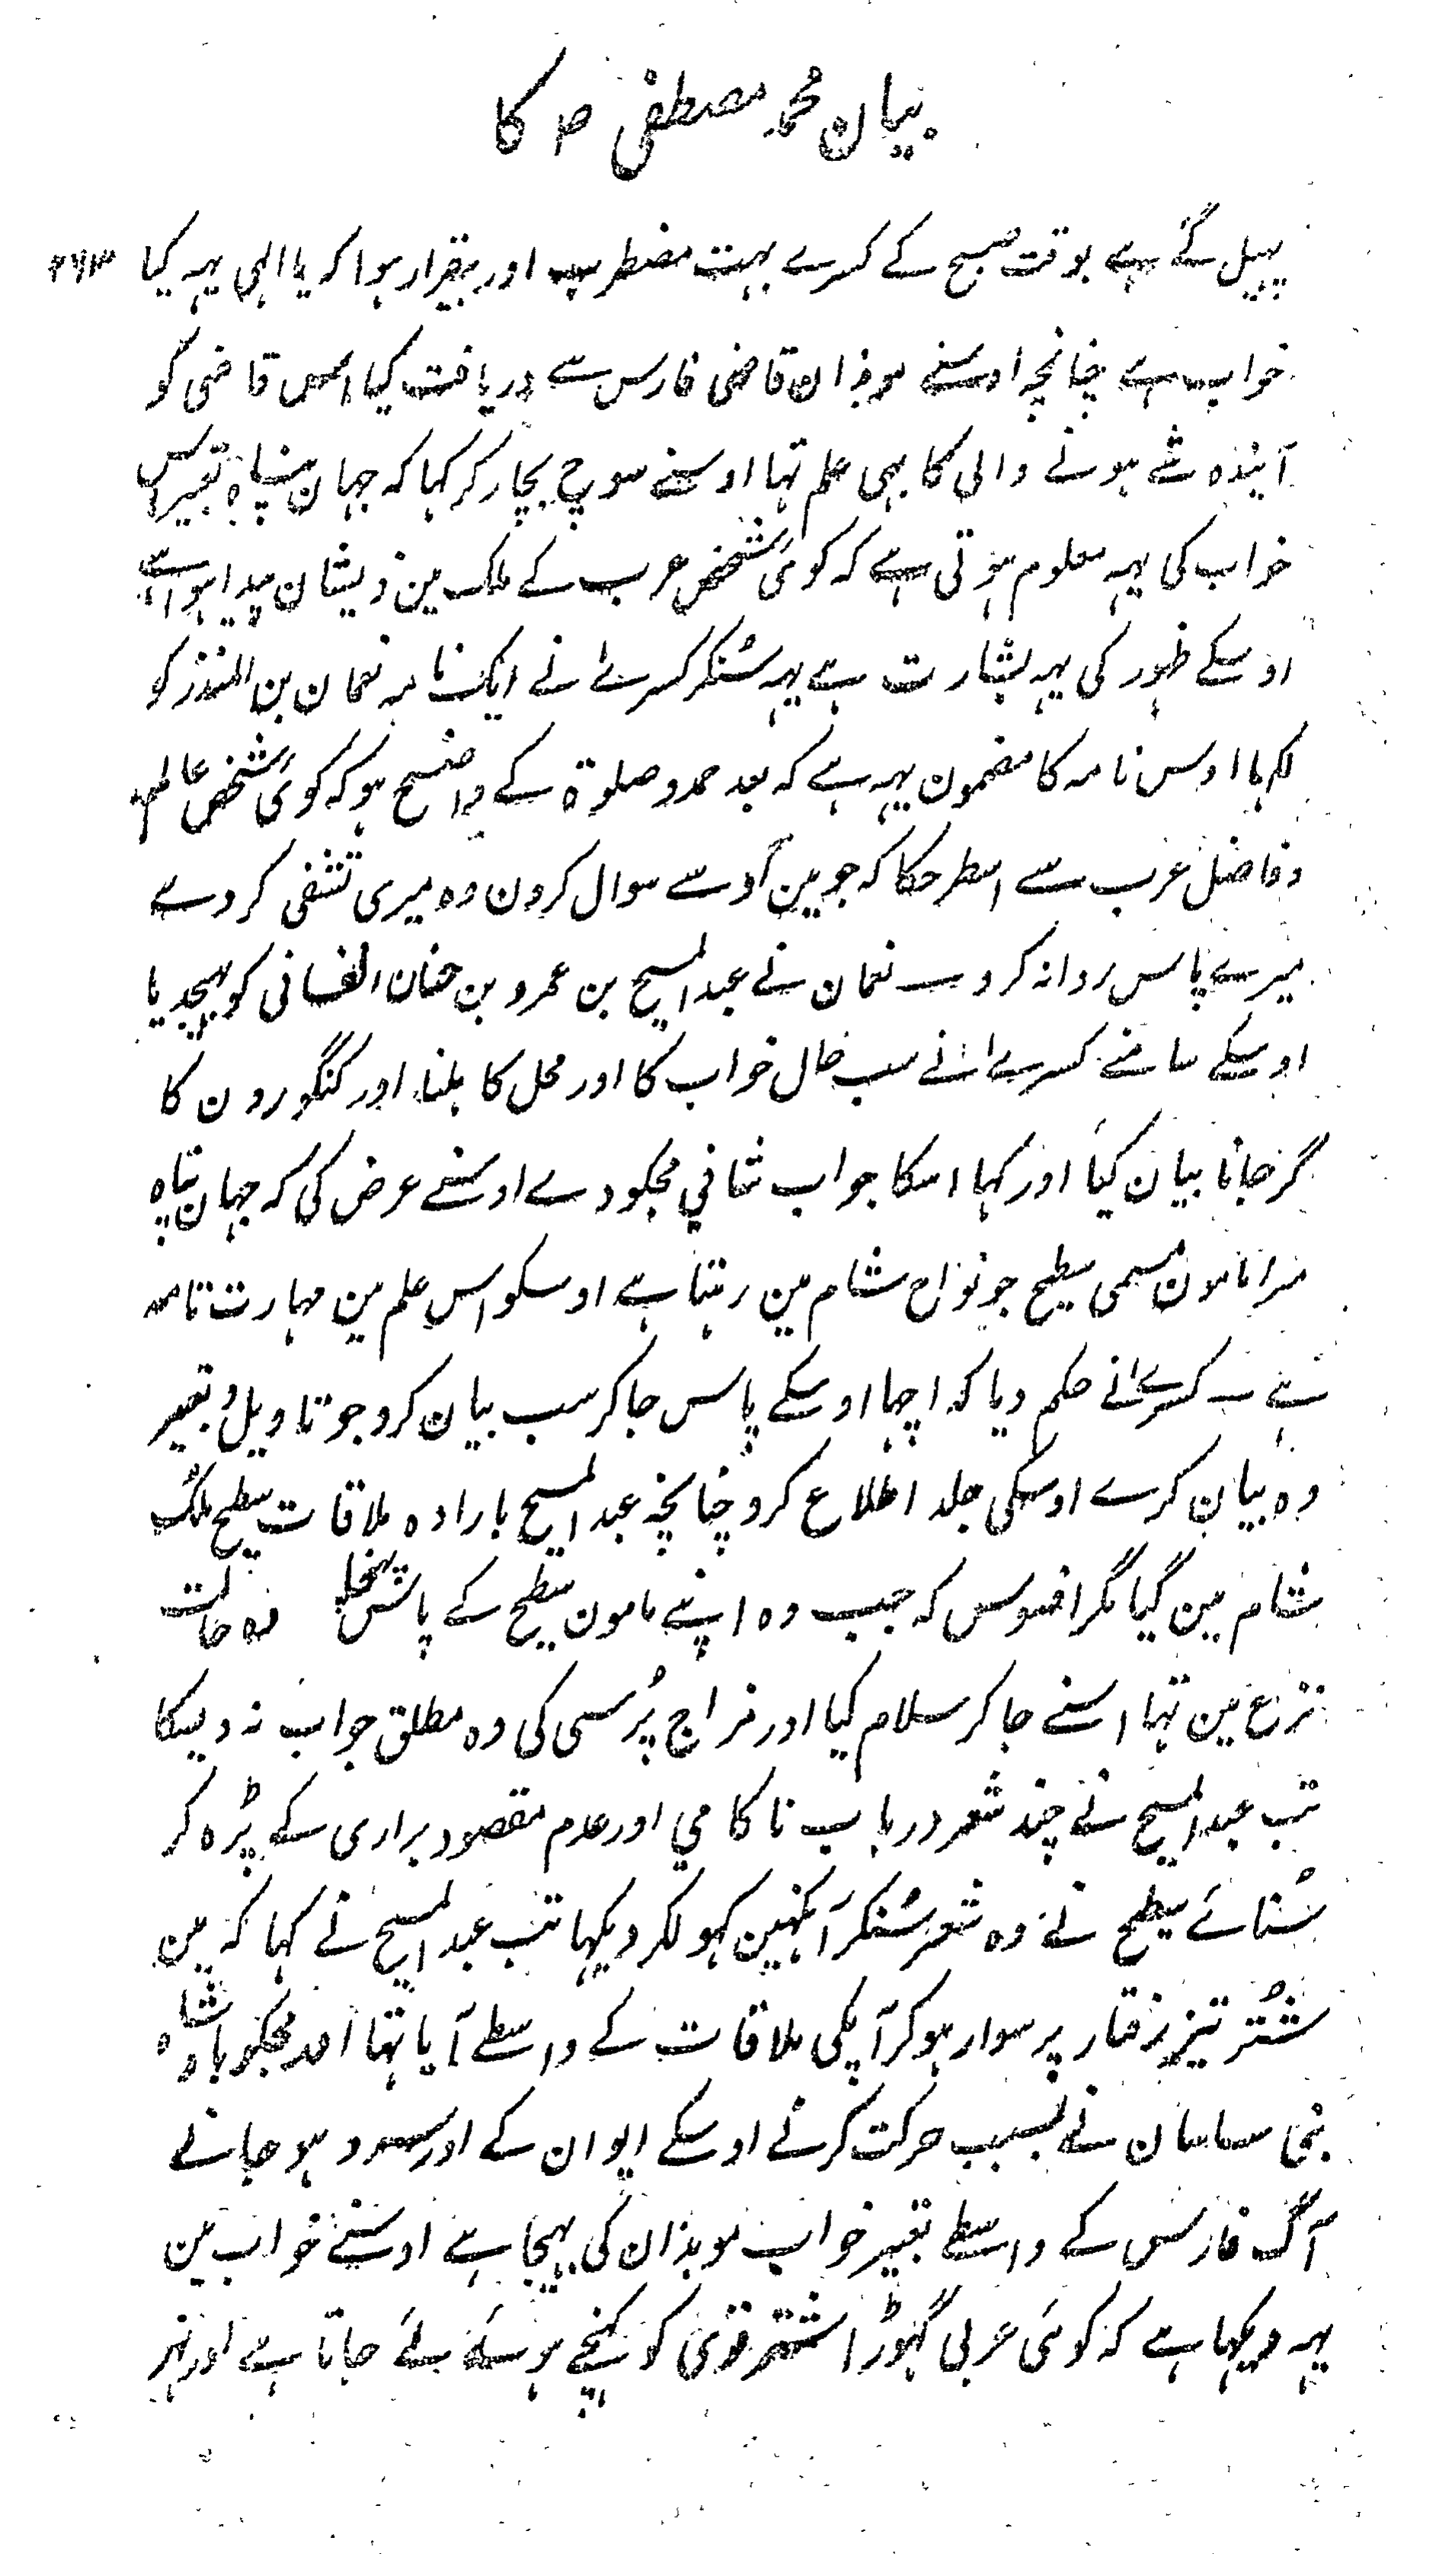 بیان محمد مصطفی ص کا
پہیل گئے ہے بوقت صبح کے کسرے بہت مضطرب اور بیقرار ہوا کہ یا الہی یہہ کیا
خواب ہے چنانچہ اوسنے موبذان قاضی فارس سے دریافت کیا اس قاضی کو
آیندہ شے ہونے والی کا بہی علم تہا اوسنے سوچ بچار کر کہا کہ جہان پناہ تعبیر اس
خواب کی یہہ معلوم ہوتی ہے کہ کوئی شخص عرب کے ملک مین ذیشان پیدا ہوا ہے
اوسکے ظہور کی یہہ بشارت ہے یہہ سُنکر کسرےٰ نے ایک نامہ نعمان بن المنذر کو
لکہا اوس نامہ کا مضمون یہہ ہے کہ بعد حمد و صلوة کے واضح ہو کہ کوئی شخص عالم
و فاضل عرب سے اسطرحکا کہ جو مین اُوسے سوال کرون وہ میری تشفی کر دے
میرے پاس روانہ کرو نعمان نے عبد المسیح بن عمرو بن حنان الغسانی کو بہیجدیا
اوسکے سامنے کسرےٰ نے سب حال خواب کا اور محل کا ہلنا اور کنگورون کا
گر جانا بیان کیا اور کہا اسکا جواب شافی مجکو دے اوسنے عرض کی کہ جہان پناہ
میرا مامون مسمی سطیح جو نواح شام مین رہتا ہے اوسکو اس علم مین مہارت تامہ
ہے کسرےٰ نے حکم دیا کہ اچہا اوسکے پاس جا کر سب بیان کرو جو تاویل و تعبیر
وہ بیان کرے اوسکی جلد اطلاع کرو چنانچہ عبد المسیح بارادہ ملاقات سطیح ملک
شام مین گیا مگر افسوس کہ جب وہ اپنے مامون سطیح کے پاس پہنچا وہ حالت
نزع مین تہا اسنے جا کر سلام کیا اور مزاج پُرسی کی وہ مطلق جواب نہ دیسکا
تب عبد المسیح نے چند شعر در باب ناکامی اور عدم مقصود براری کے پڑہ کر
سُنائے سطیح نے وہ شعر سُنکر آنکہین کہولکر دیکہا تب عبد المسیح نے کہا کہ مین
شُتر تیز رفتار پر سوار ہو کر آپکی ملاقات کے واسطے آیا تہا اور مجکو بادشاہ
بنی ساسان نے بسبب حرکت کرنے اوسکے ایوان کے اور سرد ہو جانے
آگ فارس کے واسطے تعبیر خواب موبذان کی بہیجا ہے اوسنے خواب مین
یہہ دیکہا ہے کہ کوئی عربی گہوڑا شتر قوی کو کہنچے ہوئے لئے جاتا ہے اور نہر